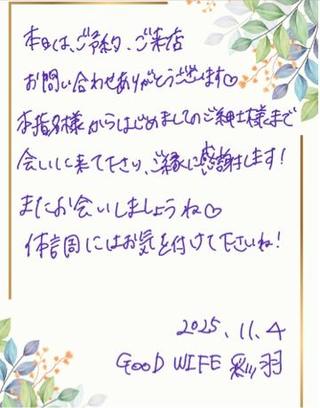 本日は、ご予約、ご来店
お問い合わせありがとうございます♡
本指名様からはじめましてのご紳士様まで
会いに来て下さり、ご縁に感謝します!
またお会いしましょうね♡
体調にはお気を付けて下さいね!
2025.11.4
GOOD WIFE 彩羽